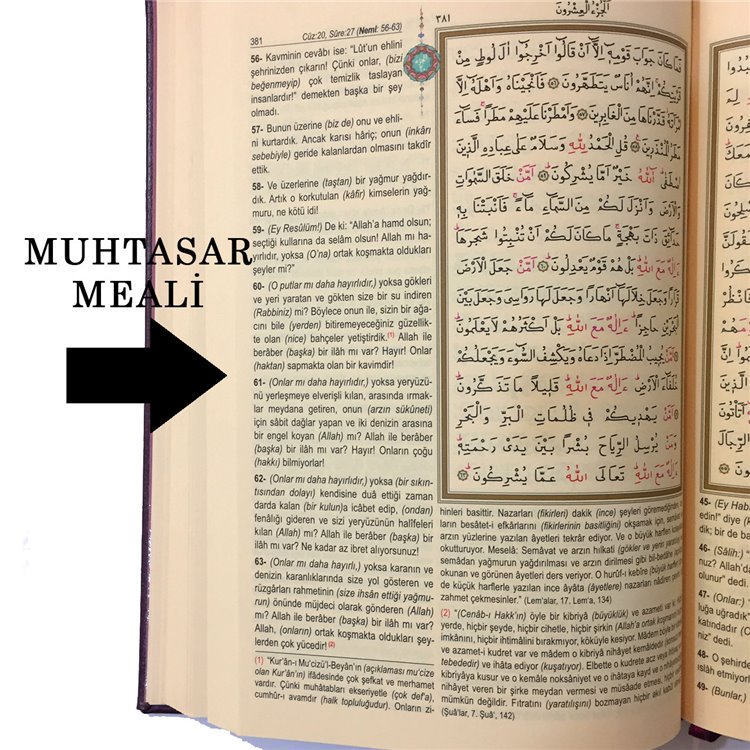 381 Cüz:20, Sûre:27 (Neml: 56-63)
56- Kavminin cevâbı ise: “Lût’un ehlini
şehrinizden çıkarın! Çünki onlar, (bizi
beğenmeyip) çok temizlik taslayan
insanlardır!” demekten başka bir şey
olmadı.
57- Bunun üzerine (biz de) onu ve ehli-
ni kurtardık. Ancak karısı hâriç; onun (inkârı
sebebiyle) geride kalanlardan olmasını takdîr
ettik.
58- Ve üzerlerine (taştan) bir yağmur yağdır-
dık. Artık o korkutulan (kâfir) kimselerin yağ-
muru, ne kötü idi!
59- (Ey Resûlüm!) De ki: “Allah’a hamd olsun;
seçtiği kullarına da selâm olsun! Allah mı ha-
yırlıdır, yoksa (O’na) ortak koşmakta oldukları
şeyler mi?”
60- (O putlar mı daha hayırlıdır,) yoksa gökleri
ve yeri yaratan ve gökten size bir su indiren
(Rabbiniz) mi? Böylece onun ile, sizin bir ağa-
cını bile (yerden) bitiremeyeceğiniz güzellik-
te olan (nice) bahçeler yetiştirdik.(1) Allah ile
berâber (başka) bir ilâh mı var? Hayır! Onlar
(haktan) sapmakta olan bir kavimdir!
61- (Onlar mı daha hayırlıdır,) yoksa yeryüzü-
nü yerleşmeye elverişli kılan, arasında ırmak-
lar meydana getiren, onun (arzın sükûneti)
için sâbit dağlar yapan ve iki denizin arasına
bir engel koyan (Allah) mı? Allah ile berâber
(başka) bir ilâh mı var? Hayır! Onların çoğu
(hakkı) bilmiyorlar!
62- (Onlar mı daha hayırlı,) yoksa (bir sıkın-
tısından dolayı) kendisine duâ ettiği zaman
darda kalan (bir kulun)a icâbet edip, (ondan)
fenâlığı gideren ve sizi yeryüzünün halîfeleri
kılan (Allah) mı? Allah ile berâber (başka) bir
ilâh mı var? Ne kadar az ibret alıyorsunuz!
63- (Onlar mı daha hayırlı,) yoksa karanın ve
denizin karanlıklarında size yol gösteren ve
rüzgârları rahmetinin (size ihsân ettiği yağmu-
run) önünde müjdeci olarak gönderen (Allah)
mı? Allah ile berâber (başka) bir ilâh mı var?
Allah, (onların) ortak koşmakta oldukları şey-
lerden çok yücedir!(2)
(1) “Kur’ân-ı Mu‘cizü’l-Beyân’ın (açıklaması mu‘cize
olan Kur’ân’ın) ifâdesinde çok şefkat ve merhamet
vardır. Çünki muhâtabları ekseriyetle (çok def‘a),
cumhûr-ı avamdır (halk topluluğudur). Onların zi-
MUHTASAR
MEALİ
٣٨١ اَلْجُزْءُ الْعِشْرُونَ
فَمَا كَانَ جَوَابَ قَوْمِهٖٓ اِلَّٓا اَنْ قَالُٓوا اَخْرِجُٓوا اٰلَ لُوطٍ مِنْ
قَرْيَتِكُمْ اِنَّهُمْ اُنَاسٌ يَتَطَهَّرُونَ ﴿٥٦﴾ فَاَنْجَيْنَاهُ وَاَهْلَهُٓ اِلَّا
امْرَاَتَهُ قَدَّرْنَاهَا مِنَ الْغَابِرِينَ ﴿٥٧﴾ وَاَمْطَرْنَا عَلَيْهِمْ مَطَرًا فَسَٓاءَ
مَطَرُ الْمُنْذَرِينَ ﴿٥٨﴾ قُلِ الْحَمْدُ لِلّٰهِ وَسَلَامٌ عَلٰى عِبَادِهِ الَّذِينَ
اصْطَفٰى آٰللّٰهُ خَيْرٌ اَمَّا يُشْرِكُونَ ﴿٥٩﴾ اَمَّنْ خَلَقَ السَّمٰوَاتِ
وَالْاَرْضَ وَاَنْزَلَ لَكُمْ مِنَ السَّمَٓاءِ مَٓاءً فَاَنْبَتْنَا بِهٖ
حَدَٓائِقَ ذَاتَ بَهْجَةٍ مَا كَانَ لَكُمْ اَنْ تُنْبِتُوا شَجَرَهَا
ءَاِلٰهٌ مَعَ اللّٰهِ بَلْ هُمْ قَوْمٌ يَعْدِلُونَ ﴿٦٠﴾ اَمَّنْ جَعَلَ الْاَرْضَ
قَرَارًا وَجَعَلَ خِلَالَهَٓا اَنْهَارًا وَجَعَلَ لَهَا رَوَاسِيَ وَجَعَلَ بَيْنَ
الْبَحْرَيْنِ حَاجِزًا ءَاِلٰهٌ مَعَ اللّٰهِ بَلْ اَكْثَرُهُمْ لَا يَعْلَمُونَ
﴿٦١﴾ اَمَّنْ يُجِيبُ الْمُضْطَرَّ اِذَا دَعَاهُ وَيَكْشِفُ السُّٓوءَ وَيَجْعَلُكُمْ
خُلَفَٓاءَ الْاَرْضِ ءَاِلٰهٌ مَعَ اللّٰهِ قَلِيلًا مَا تَذَكَّرُونَ
﴿٦٢﴾ اَمَّنْ يَهْدِيكُمْ فِي ظُلُمَاتِ الْبَرِّ وَالْبَحْرِ
وَمَنْ يُرْسِلُ الرِّيَاحَ بُشْرًا بَيْنَ يَدَيْ رَحْمَتِهٖ
ءَاِلٰهٌ مَعَ اللّٰهِ تَعَالَى اللّٰهُ عَمَّا يُشْرِكُونَ ﴿٦٣﴾
hinleri basittir. Nazarları (fikirleri) dakik (ince) şeyleri görmediğinden,
ların besâtet-i efkârlarını (fikirlerinin basitliğini) okşamak için, semâvat
arzın yüzlerine yazılan âyetleri tekrâr ediyor. Ve o büyük harfleri
okutturuyor. Meselâ: Semâvat ve arzın hılkati (gökler ve yerin yaratılışı)
semâdan yağmurun yağdırılması ve arzın dirilmesi gibi bil-bedâhe
okunan ve görünen âyetleri ders veriyor. O hurûf-ı kebîre (büyük harfler)
de küçük harflerle yazılan ince âyâta (âyetlere) nazarları nâdiren
zahmet çekmesinler.” (Lem‘alar, 17. Lem‘a, 134)
(2) “(Cenâb-ı Hakk’ın) öyle bir kibriyâ (büyüklük) ve azameti var ki,
yerde, hiçbir şeyde, hiçbir cihetle, hiçbir şirkin (Allah’a ortak koşmanın)
imkânını, hiçbir ihtimâlini bırakmıyor, köküyle kesiyor. Mâdem böyle
ve azamet-i kudret var ve mâdem o kibriyâ nihâyet kemâldedir
tebededir) ve ihâta ediyor (kuşatıyor). Elbette o kudrete acz veya ihtiyaç
kibriyâya kusur ve o kemâle noksâniyet ve o ihâtaya kayd ve o nihâyetsizliğe
nihâyet veren bir şirke meydan vermesi ve müsâade etmesi, hiçbir
mümkün değildir. Fıtratını (yaratılışını) bozmayan hiçbir akıl kabul
(Şuâ‘lar, 7. Şuâ‘, 142)
45-
(Ey Hab
edin!” diye
dik; bir de b
46- (Sâlih:)
nuz? Allah’d
olunur” dedi.
47- (Onlar:) “
luğa uğradık”
katındadır (O
niz” dedi.
48- O şehirde
islâh etmiyorl
49- (Bunlar,)